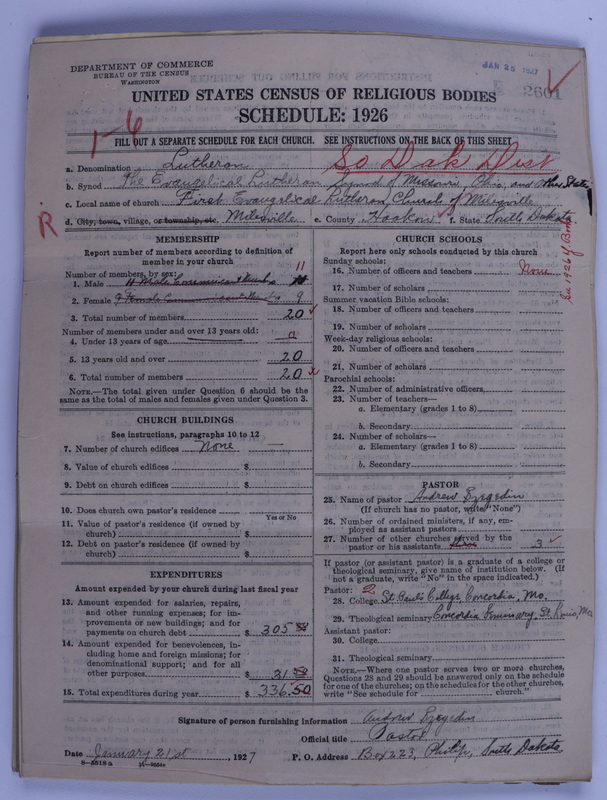 DEPARTMENT OF COMMERCE
BUREAU OF THE CENSUS
WASHINGTON
JAN 25 1927
2601
UNITED STATES CENSUS OF RELIGIOUS BODIES
SCHEDULE: 1926
1-6
FILL OUT A SEPARATE SCHEDULE FOR EACH CHURCH. SEE INSTRUCTIONS ON THE BACK OF THIS SHEET
a. Denomination Lutheran So Dak Dist
b. Synod The Evangelical Lutheran Synod of Missouri, Ohio, and other States
c. Local name of church First Evangelical Lutheran Church of Milesville
R
d. City, town, village, or township, etc. Milesville e. County Haakon f. State South Dakota
MEMBERSHIP
Report number of members according to definition of
member in your church
Number of members by sex:
1. Male 11 Male Communicant Memb. 11
2. Female 9 Female Communicant Memb. 9
3. Total number of members 20
Number of members under and over 13 years old:
4. Under 13 years of age a
5. 13 years old and over 20
6. Total number of members 20 x
NOTE.—The total given under Question 6 should be the
same as the total of males and females given under Question 3.
CHURCH BUILDINGS
See instructions, paragraphs 10 to 12
7. Number of church edifices None
8. Value of church edifices $
9. Debt on church edifices $
10. Does church own pastor's residence
Yes or No
11. Value of pastor's residence (if owned by
church) $
12. Debt on pastor's residence (if owned by
church) $
EXPENDITURES
Amount expended by your church during last fiscal year
13. Amount expended for salaries, repairs,
and other running expenses; for im-
provements or new buildings; and for
payments on church debt $ 305
14. Amount expended for benevolences, in-
cluding home and foreign missions; for
denominational support; and for all
other purposes $ 31
15. Total expenditures during year $ 336.50
CHURCH SCHOOLS
Report here only schools conducted by this church
Sunday schools:
16. Number of officers and teachers None
17. Number of scholars
Summer vacation Bible schools:
18. Number of officers and teachers
19. Number of scholars
Week-day religious schools:
20. Number of officers and teachers
21. Number of scholars
Parochial schools:
22. Number of administrative officers
23. Number of teachers—
a. Elementary (grades 1 to 8)
b. Secondary
24. Number of scholars—
a. Elementary (grades 1 to 8)
b. Secondary
PASTOR
25. Name of pastor Andrew Szegedin
(If church has no pastor, write "None")
26. Number of ordained ministers, if any, em-
ployed as assistant pastors
27. Number of other churches served by the
pastor or his assistants three 3
If pastor (or assistant pastor) is a graduate of a college or
theological seminary, give name of institution below. (If
not a graduate, write "No" in the space indicated.)
Pastor: 2
28. College St. Paul's College Concordia, Mo.
29. Theological seminary Concordia Seminary, St. Louis, Mo
Assistant pastor:
30. College
31. Theological seminary
NOTE.—Where one pastor serves two or more churches,
Questions 28 and 29 should be answered only on the schedule
for one of the churches; on the schedules for the other churches,
write "See schedule for church."
Signature of person furnishing information Andrew Szegedin
Official title Pastor
Date January 21st, 1927 P. O. Address Box 223, Philip, South Dakota